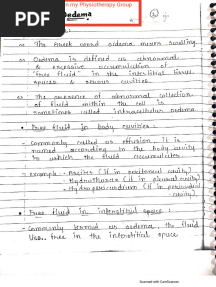 PDF
on my Physiotherapy Group
Oedema
The Greek word oidema means swelling.
Oedema is defined as abnormal
& excessive accumulation of
"free fluid" in the interstitial tissue
spaces & serous cavities
The presence of abnormal collection
of fluid within the cell is
sometimes called intracellular oedema
• Free fluid in body cavities :
- Commonly called as effusion, it is
named according to the body cavity
in which the fluid accumulates
- Example - • Ascites (if in peritoneal cavity)
• Hydrothorax (if in pleural cavity)
• Hydropericardium (if in pericardial
cavity)
• Free fluid in interstitial space :
- Commonly termed as oedema the fluid
lies free in the interstitial space
Scanned with CamScanner